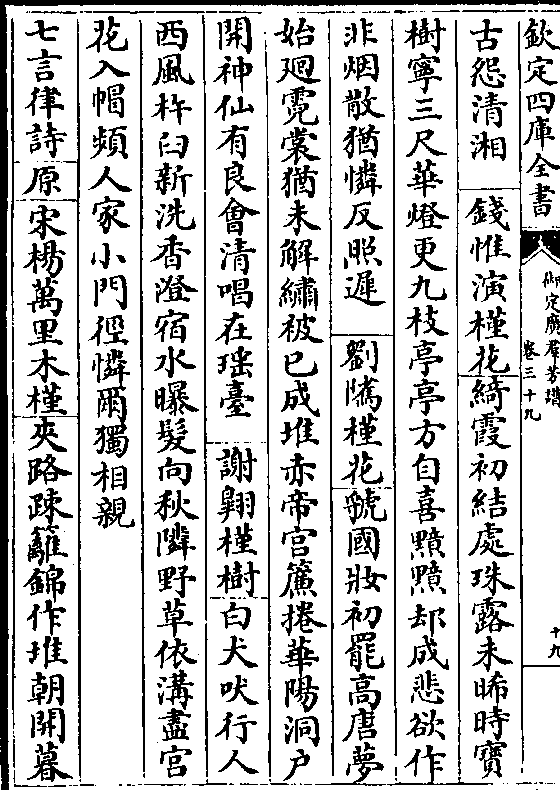 欽定四庫全書
御定廣羣芳譜
卷三十九
十九
古怨清湘 錢惟演槿花綺霞初結處珠露未晞時寶
樹寧三尺華燈更九枝亭亭方自喜黯黯却成悲欲作
非烟散猶憐反照遲 劉隲槿花虢國妝初罷高唐夢
始廻霓裳猶未解繡被已成堆赤帝宮簾捲華陽洞户
開神仙有良會清唱在瑶臺 謝翺槿樹白犬吠行人
西風杵臼新洗香澄宿水曝髮向秋隣野草依溝盡宮
花入帽頻人家小門徑憐爾獨相親
七言律詩原宋楊萬里木槿夾路疎籬錦作堆朝開暮